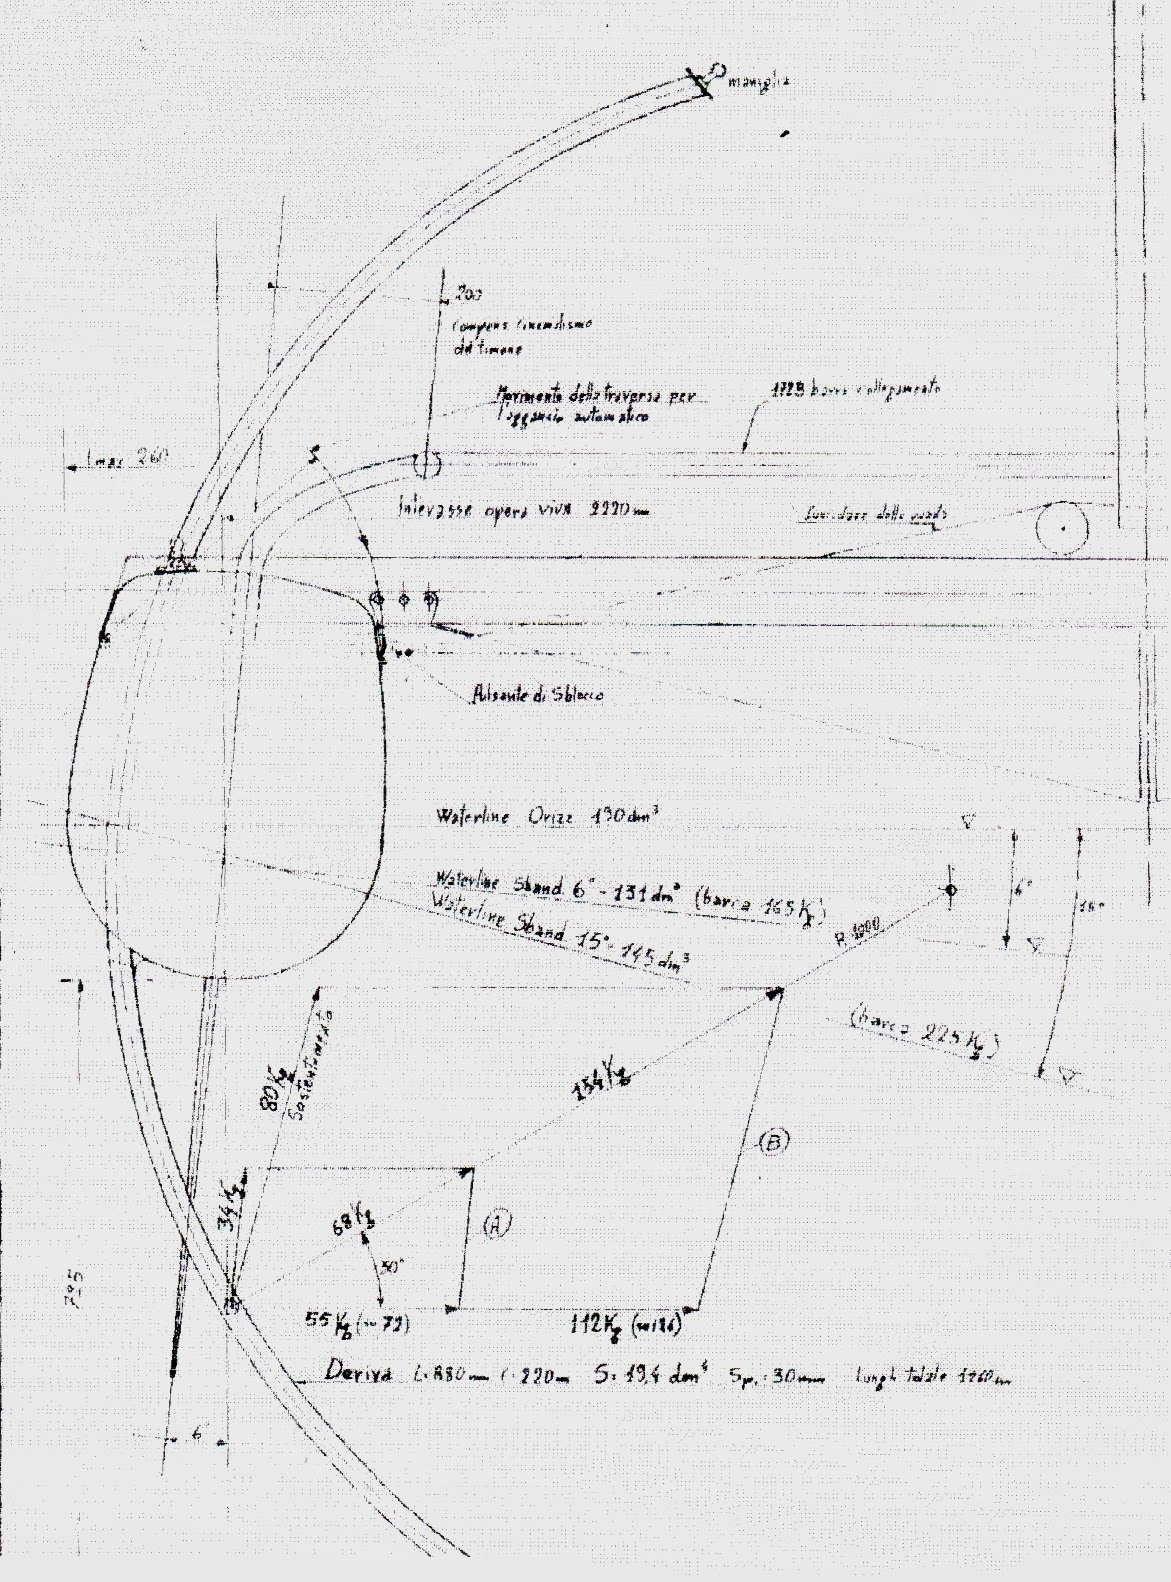 maniglia
200
Compens Cinematismo
del timone
Movimento della traversa per
l'aggancio automatico
1728 barra collegamento
l max 260
Interasse opera viva 2220 mm
della
Pulsante di Sblocco
Waterline Orizz 130 dm³
Waterline Sband 6° - 131 dm³ (barca 165 Kg)
Waterline Sband 15° - 145 dm³
R. 1000
6°
15°
(barca 225 Kg)
80 Kg
Sostentamento
154 Kg
B
34 Kg
68 Kg
A
30°
795
55 Kg (~72)
112 Kg
Deriva L. 880 mm C. 220 mm S = 19,4 dm² Sp. 30 mm Lungh totale 1260 mm
6°